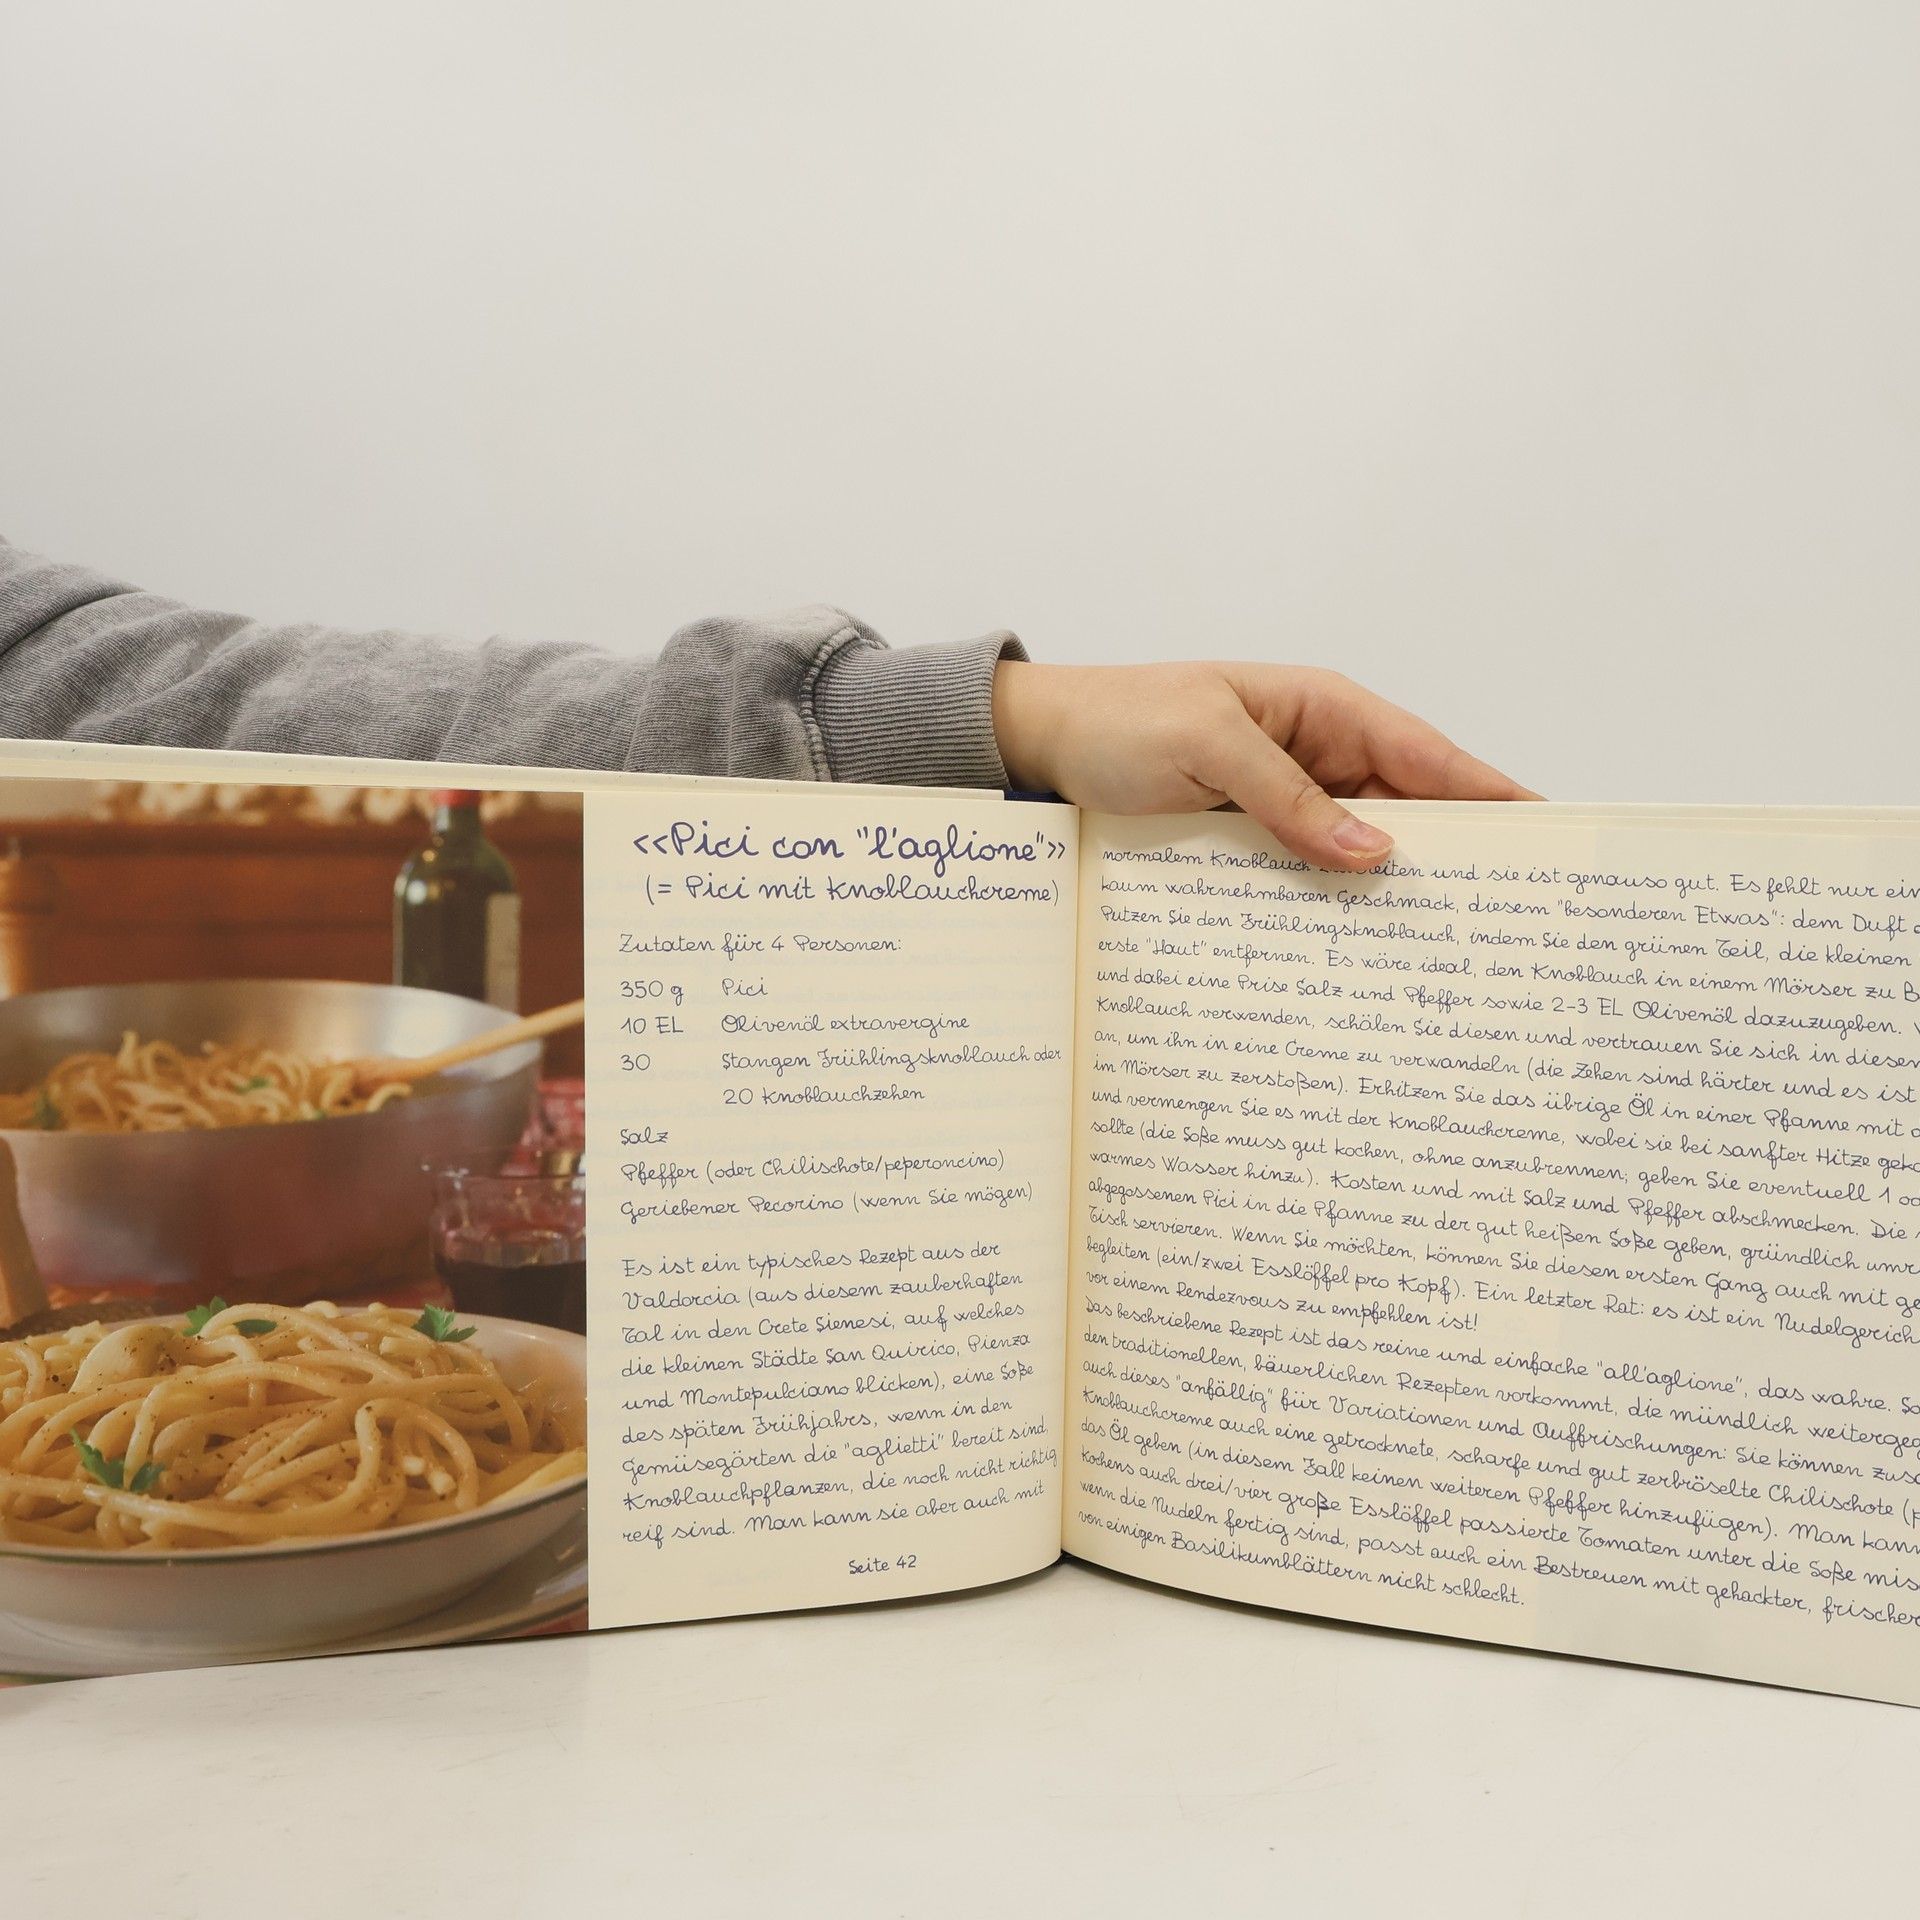 <<Pici con "l'aglione">>
(= Pici mit Knoblauchcreme)
Zutaten für 4 Personen:
350 g Pici
10 EL Olivenöl extravergine
30 Stangen Frühlingsknoblauch oder
20 Knoblauchzehen
Salz
Pfeffer (oder Chilischote/peperoncino)
Geriebener Pecorino (wenn Sie mögen)
Es ist ein typisches Rezept aus der
Valdorcia (aus diesem zauberhaften
Tal in den Crete Sienesi, auf welches
die kleinen Städte San Quirico, Pienza
und Montepulciano blicken), eine Soße
des späten Frühjahrs, wenn in den
Gemüsegärten die "aglietti" bereit sind,
Knoblauchpflanzen, die noch nicht richtig
reif sind. Man kann sie aber auch mit
Seite 42
normalem Knoblauch und sie ist genauso gut. Es fehlt nur
kaum wahrnehmbaren Geschmack, diesem "besonderen Etwas": dem Duft
Putzen Sie den Frühlingsknoblauch, indem Sie den grünen Teil, die kleinen
erste "Haut" entfernen. Es wäre ideal, den Knoblauch in einem Mörser zu
und dabei eine Prise Salz und Pfeffer sowie 2-3 EL Olivenöl dazuzugeben.
Knoblauch verwenden, schälen Sie diesen und vertrauen Sie sich in diesem
an, um ihn in eine Creme zu verwandeln (die Zehen sind härter und es ist
im Mörser zu zerstoßen). Erhitzen Sie das übrige Öl in einer Pfanne mit
und vermengen Sie es mit der Knoblauchcreme, wobei sie bei sanfter Hitze
sollte (die Soße muss gut kochen, ohne anzubrennen; geben Sie eventuell 1
warmes Wasser hinzu). Kosten und mit Salz und Pfeffer abschmecken. Die
abgegossenen Pici in die Pfanne zu der gut heißen Soße geben, gründlich
Tisch servieren. Wenn Sie möchten, können Sie diesen ersten Gang auch mit
begleiten (ein/zwei Esslöffel pro Kopf). Ein letzter Rat: es ist ein Nudelgericht,
vor einem Rendezvous zu empfehlen ist!
Das beschriebene Rezept ist das reine und einfache "all'aglione", das wahre.
den traditionellen, bäuerlichen Rezepten vorkommt, die mündlich
auch dieses "anfällig" für Variationen und Auffrischungen: Sie können
Knoblauchcreme auch eine getrocknete, scharfe und gut zerbröselte Chilischote
das Öl geben (in diesem Fall keinen weiteren Pfeffer hinzufügen). Man kann
Kochens auch drei/vier große Esslöffel passierte Tomaten unter die Soße
wenn die Nudeln fertig sind, passt auch ein Bestreuen mit gehackter,
von einigen Basilikumblättern nicht schlecht.